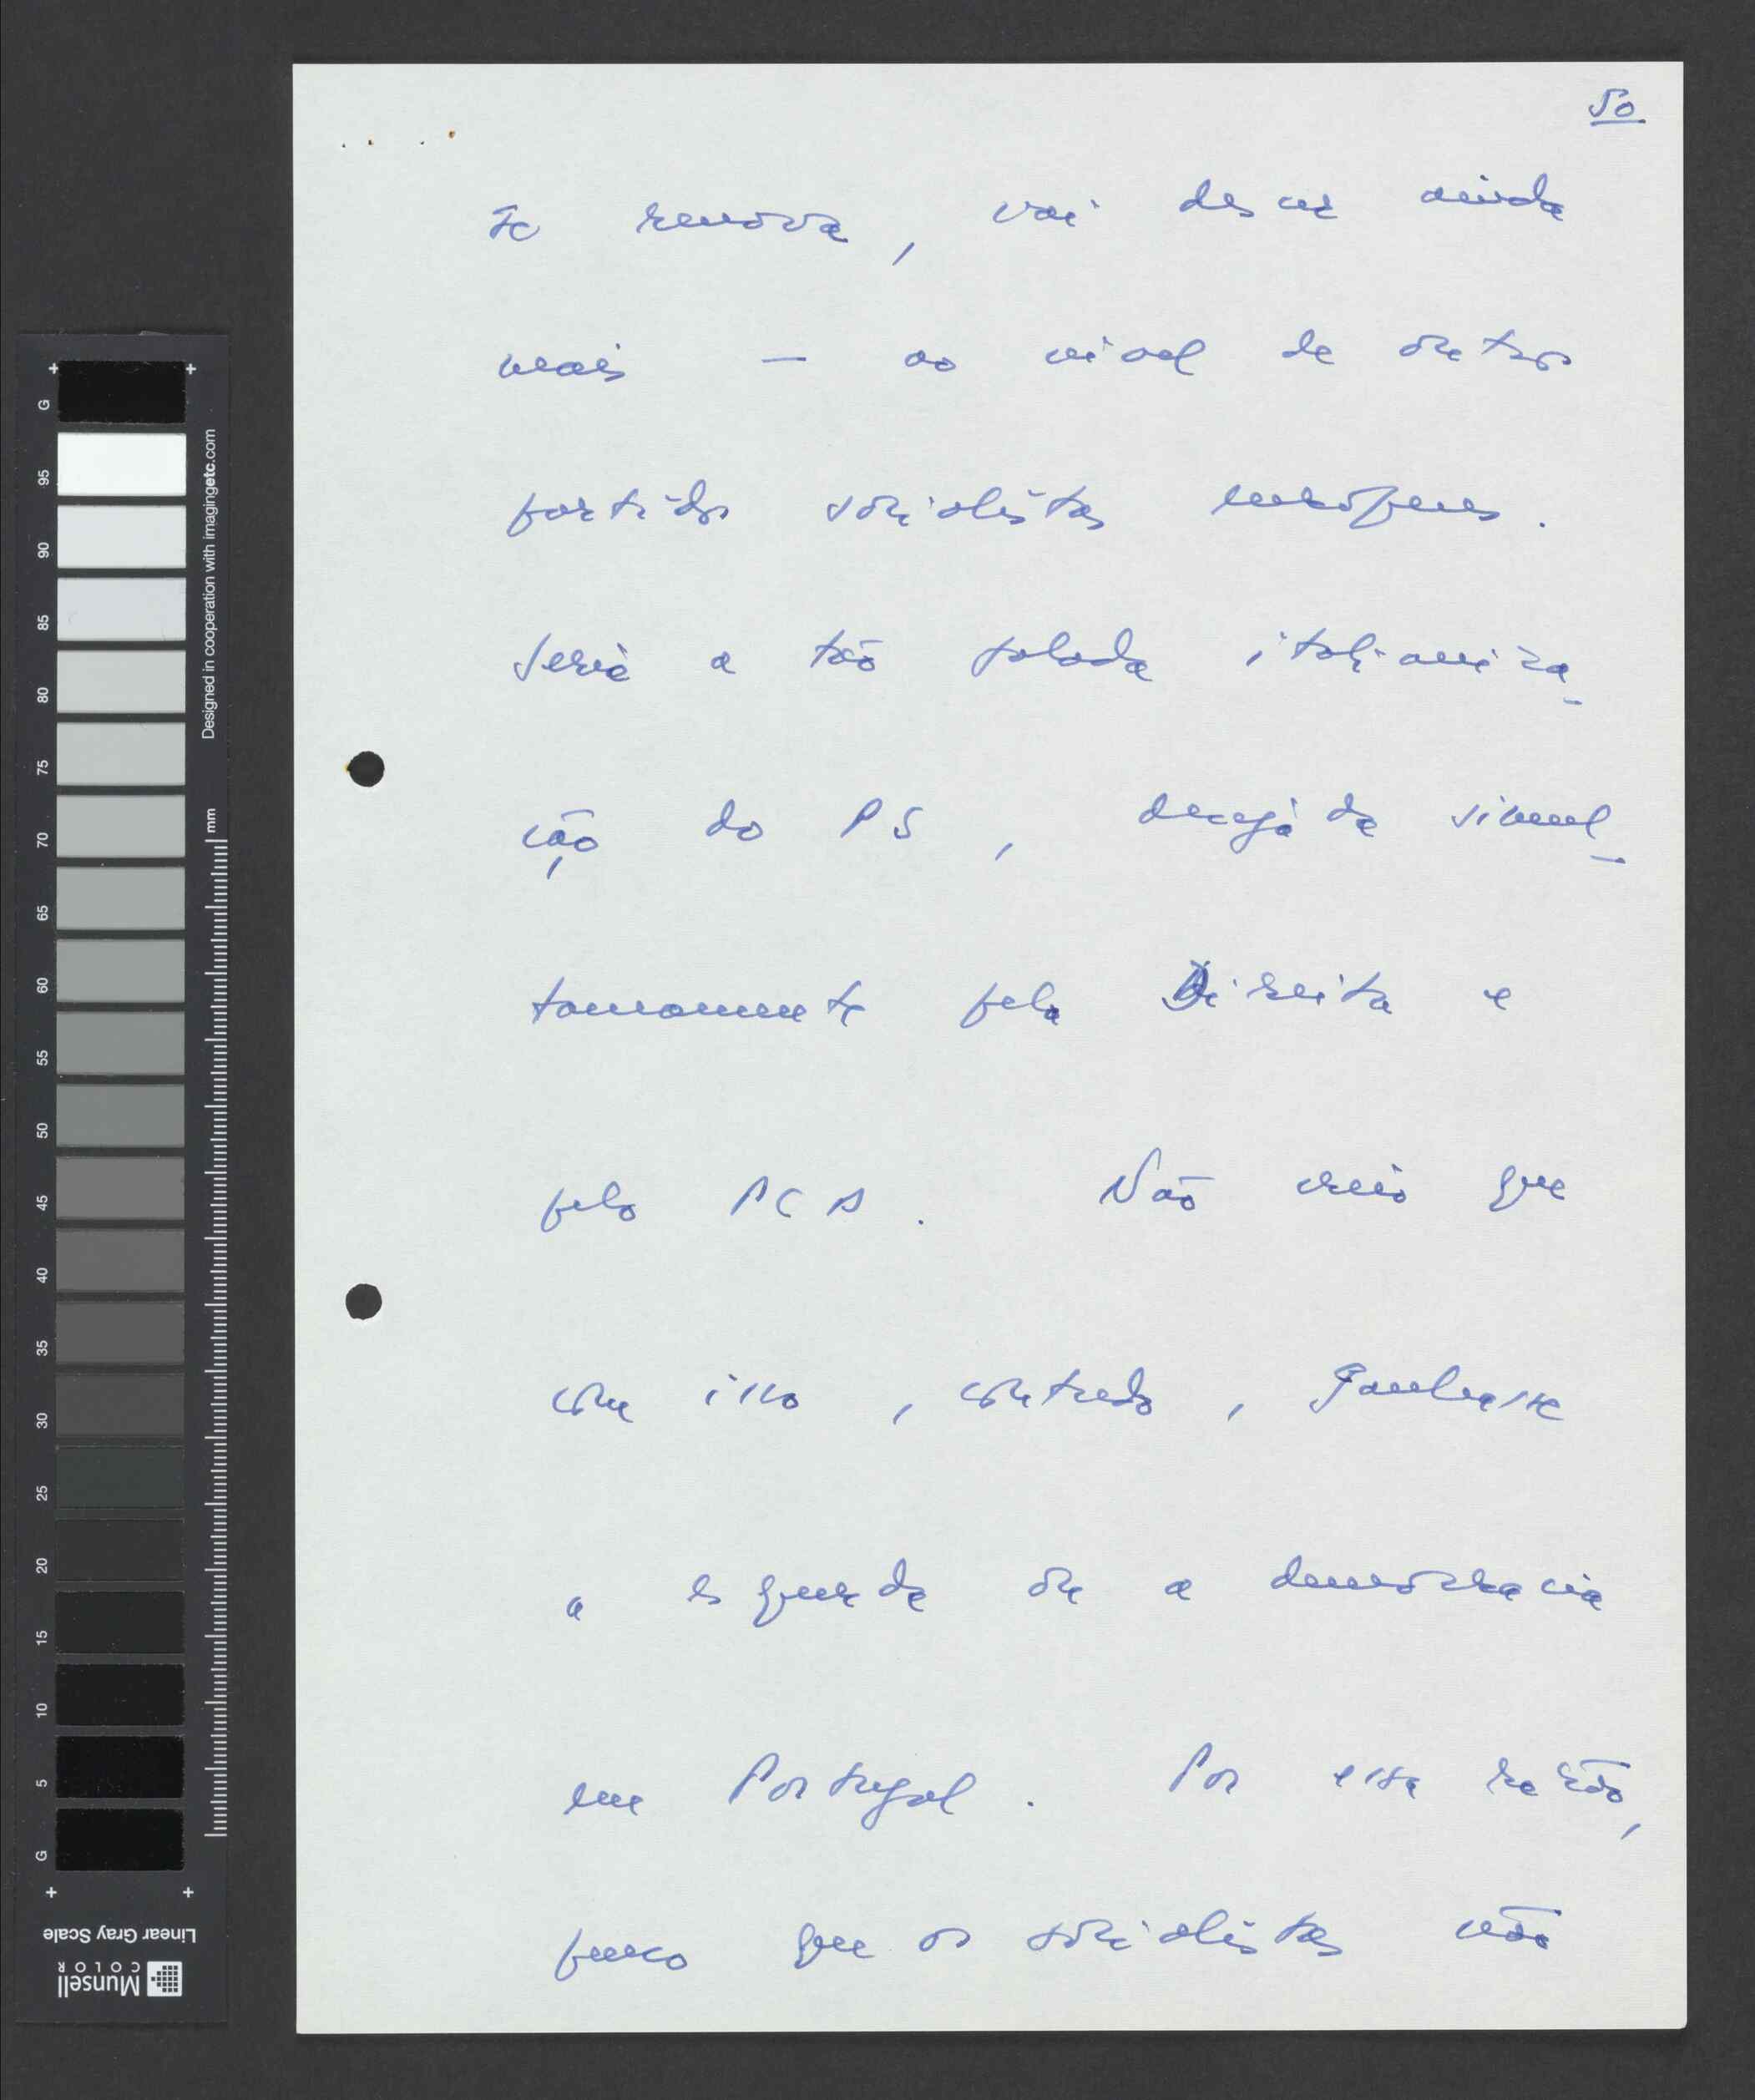 50
se renova, vai descer ainda
mais — ao nível de outros
partidos socialistas europeus.
Seria a tão falada italianiza-
ção do PS, desejada simul-
taneamente pela Direita e
pelo PCP. Não creio que
com isso, contudo, ganhasse
a esquerda ou a democracia
em Portugal. Por essa razão,
penso que os socialistas não
G
95
90
85
80
75
70
65
60
55
50
45
40
35
30
25
20
15
10
5
G
mm
Designed in cooperation with imagingetc.com
Linear Gray Scale
Munsell
COLOR